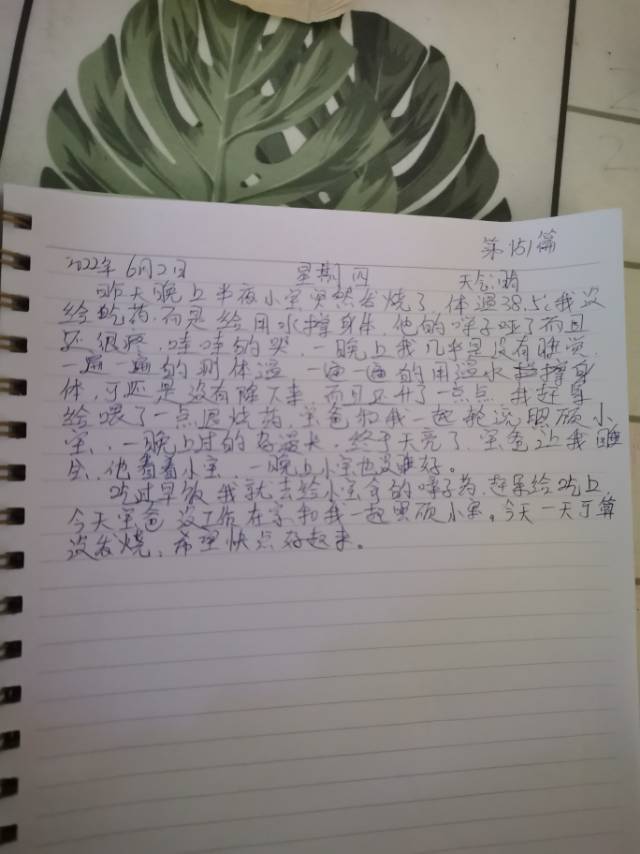 第151篇
2022年6月2日 星期四 天气:晴
昨天晚上半夜小宝突然发烧了,体温38.5,我没
给吃药,而是给用水擦身体,他的嗓子哑了而且
还很疼,哇哇的哭,一晚上我几乎是没有睡觉,
一遍一遍的测体温,一遍一遍的用温水擦身
体,可还是没有降下来,而且又升了一点点,我赶早
给喂了一点退烧药,宝爸和我一起轮流照顾小
宝,一晚上过的好漫长,终于天亮了,宝爸让我睡
会,他看着小宝,一晚上小宝也没睡好。
吃过早饭我就去给小宝拿的嗓子药,赶紧给吃上,
今天宝爸没工作在家和我一起照顾小宝。今天一天可算
没发烧,希望快点好起来。